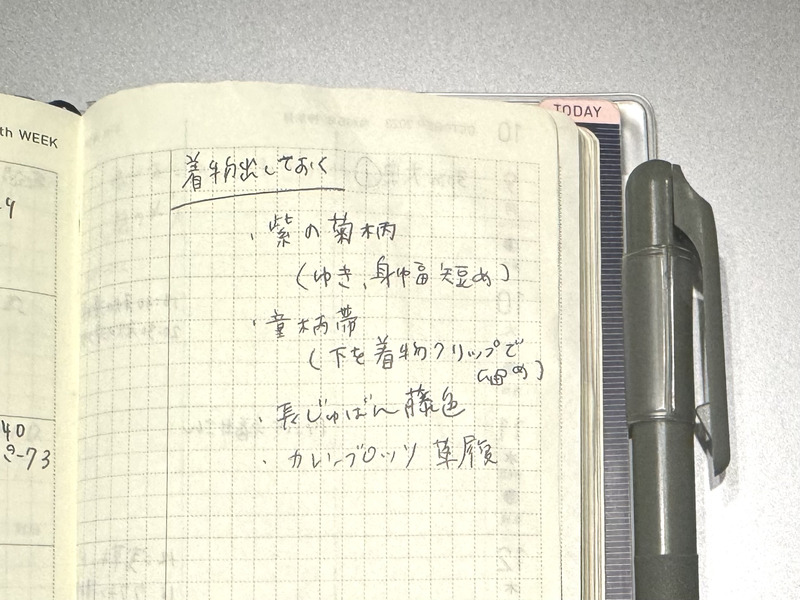 th WEEK
TODAY
着物出しておく
・紫の菊柄
(ゆき、身巾幅短め)
・童柄帯
(下を着物クリップで
留め)
・長じゅばん 藤色
・カレンブロッソ 草履
40
-73